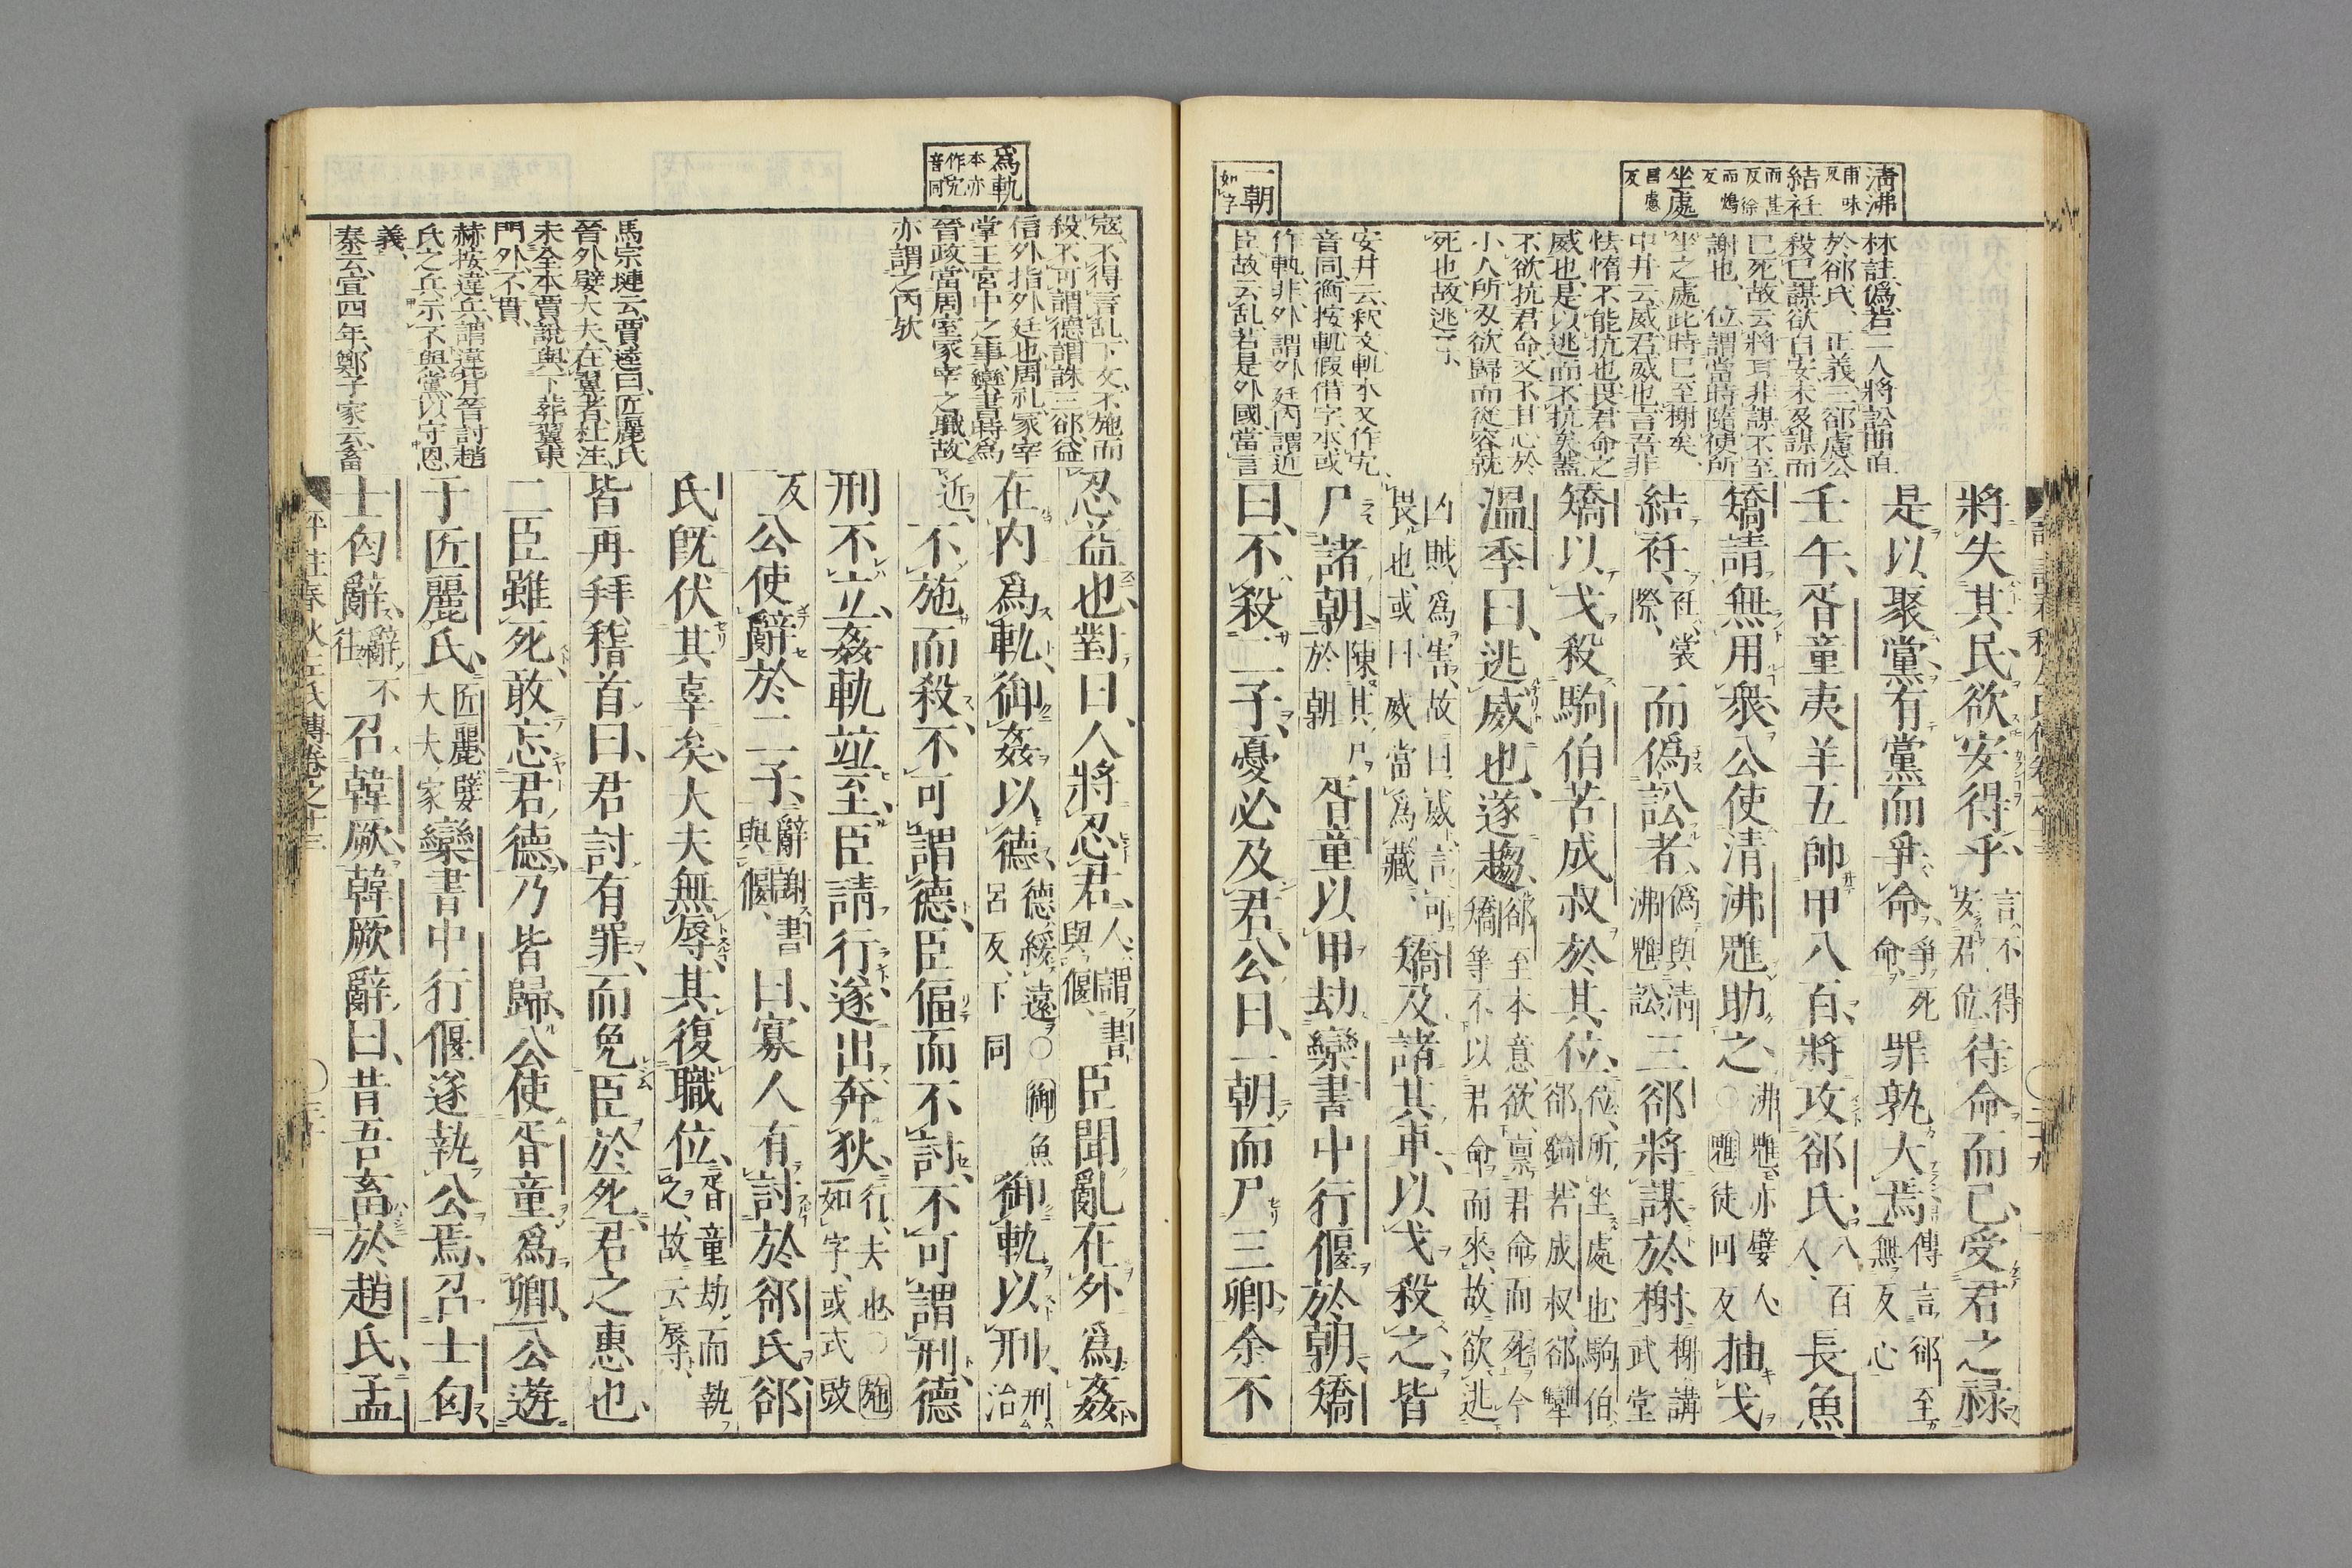 清沸
甫味反
結衽
而甚反徐而鴆反
坐處
昌慮反
一朝
如字
林註、偽若二人將訟曲直
於郤氏、正義、三郤慮公
殺已、謀欲自安、未及謀而
已死、故云將耳、非謀不至
謝也、位謂當時隨便所
坐之處、此時已至榭矣、
中井云、威、君威也、言吾非
怯惰不能抗也、畏君命之
威也、是以逃而不抗矣、蓋
不欲抗君命、又不甘心於
小人所及、欲歸而從容就
死也、故逃云爾、
安井云、釈文軌本又作宄
音同、衡按、軌假借字、本或
作軌、非、外謂外廷、內謂近
臣、故云乱、若是外國、當言
將失其民、欲安得乎、言不得安君位、待命而已、受君之祿
是以聚黨、有黨而爭命、爭死命、罪孰大焉、傳言郤至無反心
壬午、胥童夷羊五帥甲八百、將攻郤氏、八百人、長魚
矯請無用衆、公使清沸魋助之、沸魋亦嬖人○魋徒回反抽戈
結衽、衽裳際、而偽訟者、偽與清沸魋訟、三郤將謀於榭、榭講武堂
矯以戈殺駒伯苦成叔於其位、位、所坐處也、駒伯郤錡、苦成叔郤犨
溫季曰、逃威也、遂趨、郤至本意、欲稟君命而死、今矯等不以君命而來、故欲逃
凶賊爲害、故曰威、言可畏也、或曰、威當爲藏、矯及諸其車、以戈殺之、皆
尸諸朝、陳其尸於朝胥童以甲劫欒書中行偃於朝、矯
曰、不殺二子、憂必及君、公曰、一朝而尸三卿、余不
爲軌
本亦作宄音同
寇、不得言乱、下文不施而
殺、不可謂德、謂誅三郤、益
信外指外廷也、周礼、冢宰
掌王宮中之事、欒書時爲
晉政、當周室冢宰之職、故
亦謂之內欤
馬宗璉云、賈逵曰、匠麗氏
晉外嬖大夫、在翼者、杜注
未全本賈說、與下葬翼東
門外、不貫、
赫按、違兵、謂違背晉討趙
氏之兵、示不與黨、以守恩
義、
秦云、宣四年、鄭子家云、畜
忍益也、對曰、人將忍君、人、謂書與偃、臣聞亂在外爲姦
在內爲軌、御姦以德、德綏遠○御魚呂反、下同御軌以刑、刑治
近、不施而殺、不可謂德、臣偪而不討、不可謂刑、德
刑不立、姦軌並至、臣請行、遂出奔狄、行、去也○施如字、或式豉
反公使辭於二子、辭謝書與偃、曰、寡人有討於郤氏、郤
氏既伏其辜矣、大夫無辱、其復職位、胥童劫而執之、故云辱、
皆再拜稽首曰、君討有罪、而免臣於死、君之惠也、
二臣雖死、敢忘君德、乃皆歸、公使胥童爲卿、公遊
于匠麗氏、匠麗嬖大夫家欒書中行偃遂執公焉、召士匄、
士匄辭、辭不往召韓厥、韓厥辭曰、昔吾畜於趙氏、孟